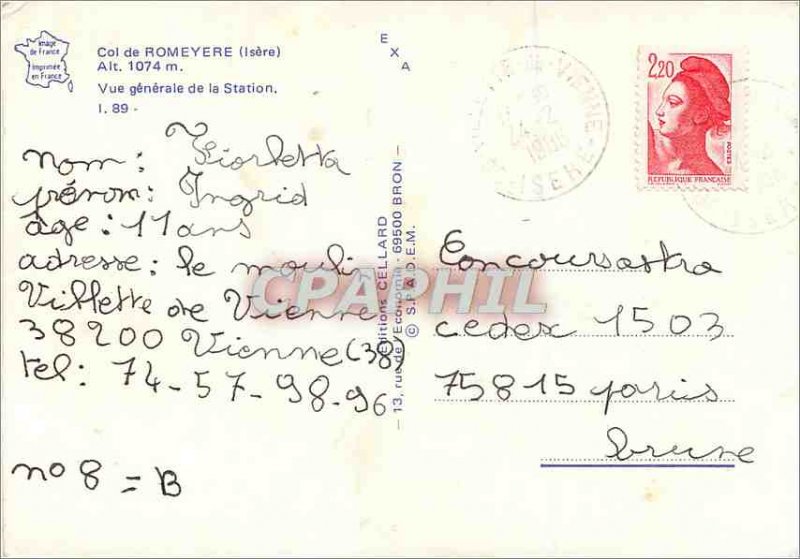 Image
de France
imprimée
en France
Col de ROMEYERE (Isère)
Alt. 1074 m.
Vue générale de la Station.
I. 89 -
E
X
A
VIENNE
ISERE
2,20
POSTES
REPUBLIQUE FRANÇAISE
nom: Fiorletta
prénom: Ingrid
âge: 11 ans
adresse: le moulin
Villette de Vienne
38200 Vienne (38)
tel: 74-57-98-96
no 8 = B
Editions CELLARD
13, rue de l'Economie - 69500 BRON
© S.P.A.D.E.M.
CPAPHIL
Concoursastra
cedex 1503
75815 paris
brune